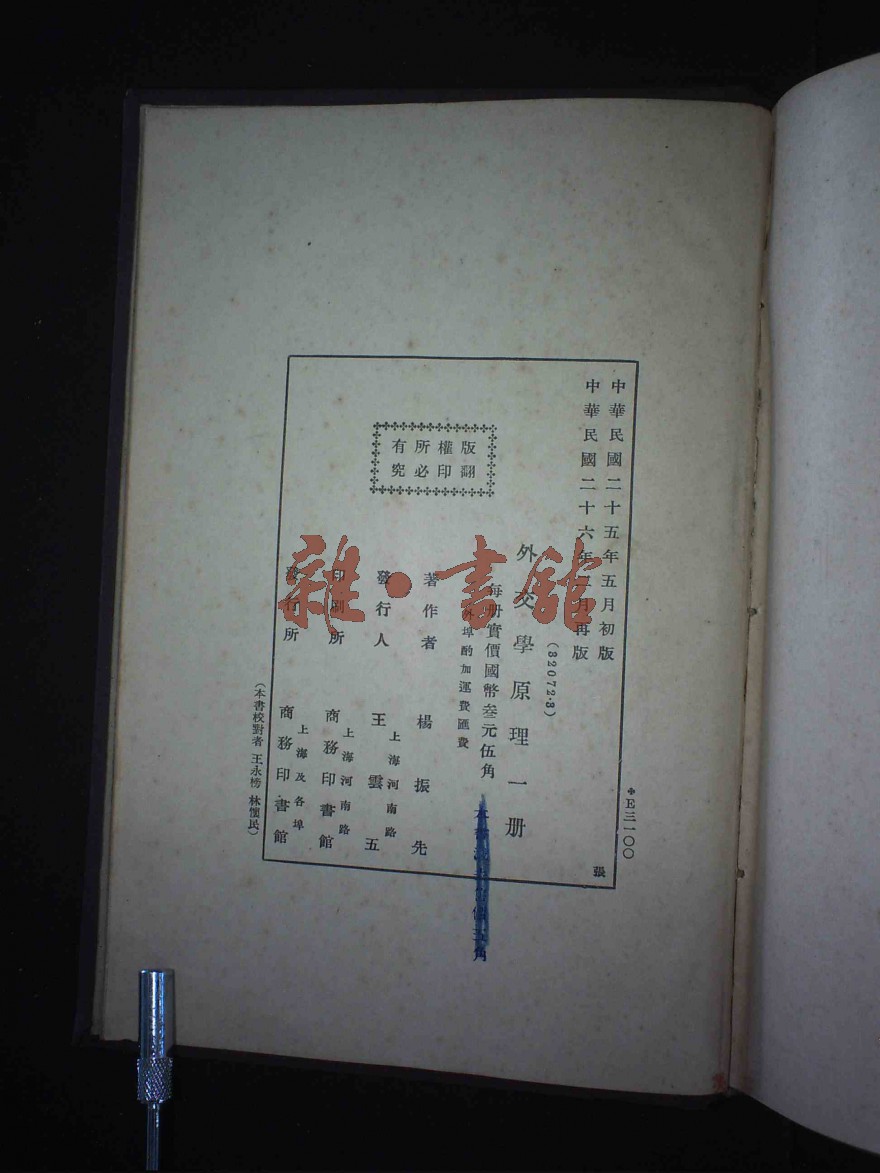 中華民國二十五年五月初版
中華民國二十六年二月再版
(32072·3)
外交學原理一册
每册實價國幣叁元伍角
外埠酌加運費匯費
版權所有
翻印必究
著作者
楊振先
發行人
王雲五
上海河南路
印刷所
商務印書館
上海河南路
發行所
商務印書館
上海及各埠
(本書校對者 王永榜 林懷民)
E三一〇〇
張
雜·書館